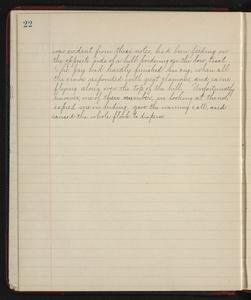 22
was evident from these notes, had been feeding on
the opposite side of a hill bordering on the low, treat.
The jay had hardly finished his cry, when all
the crows responded with great clamour and came
flying along over the top of the hill. Unfortunately
however, one of their number, in looking at the
espied me in hiding, gave the warning call, and
caused the whole flock to disperse.